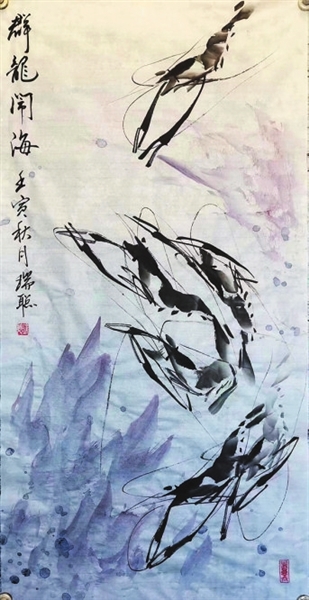 群龍鬧海
壬寅秋月瑞聰